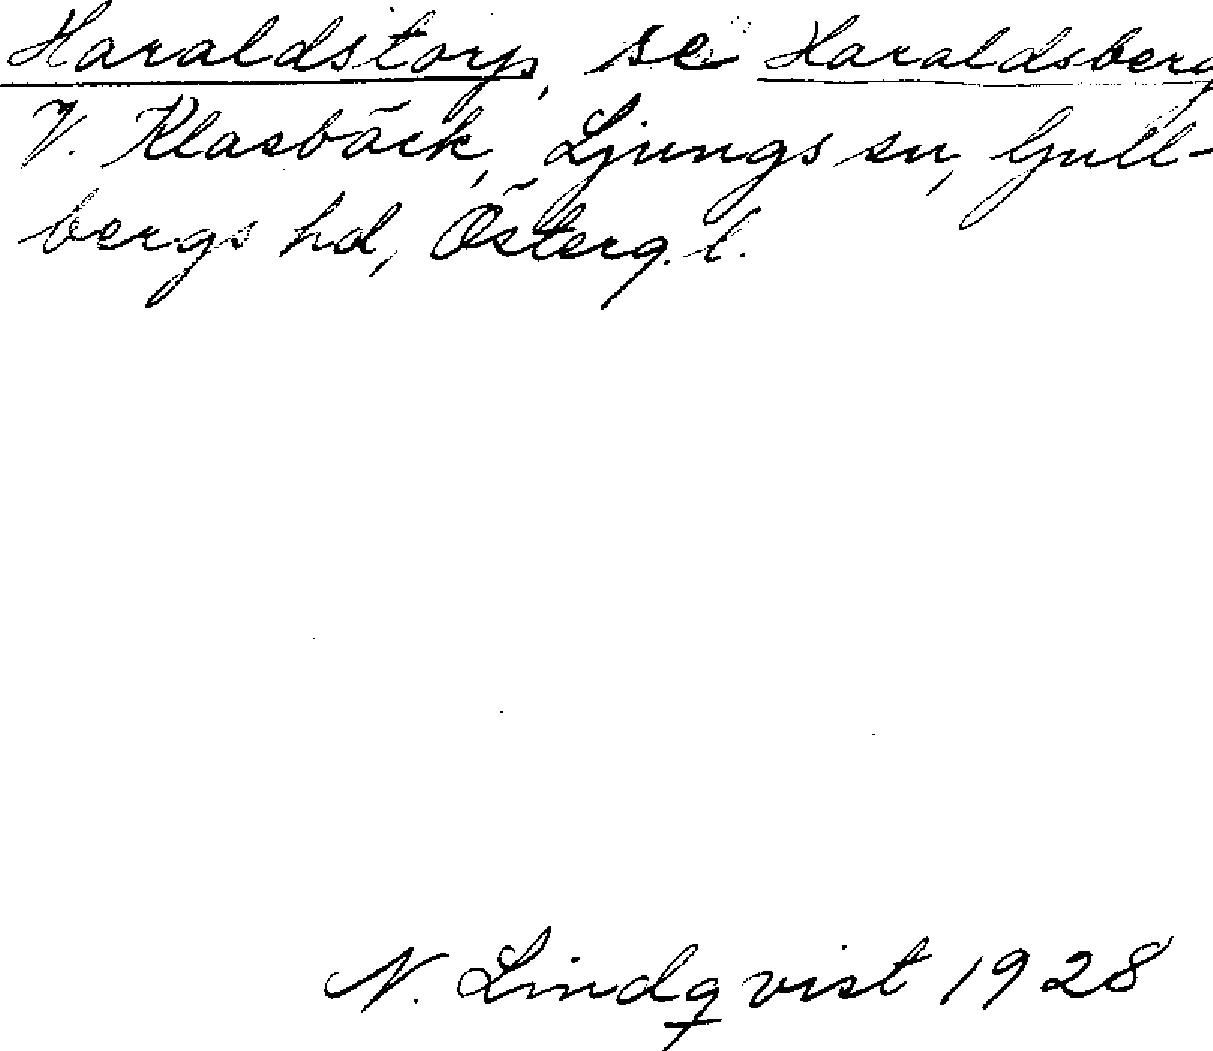 Haraldstorp, se Haraldsberg
V. Klasbäck, Ljungs sn, Gull-
bergs hd, Österg. l.
N. Lindqvist 1928